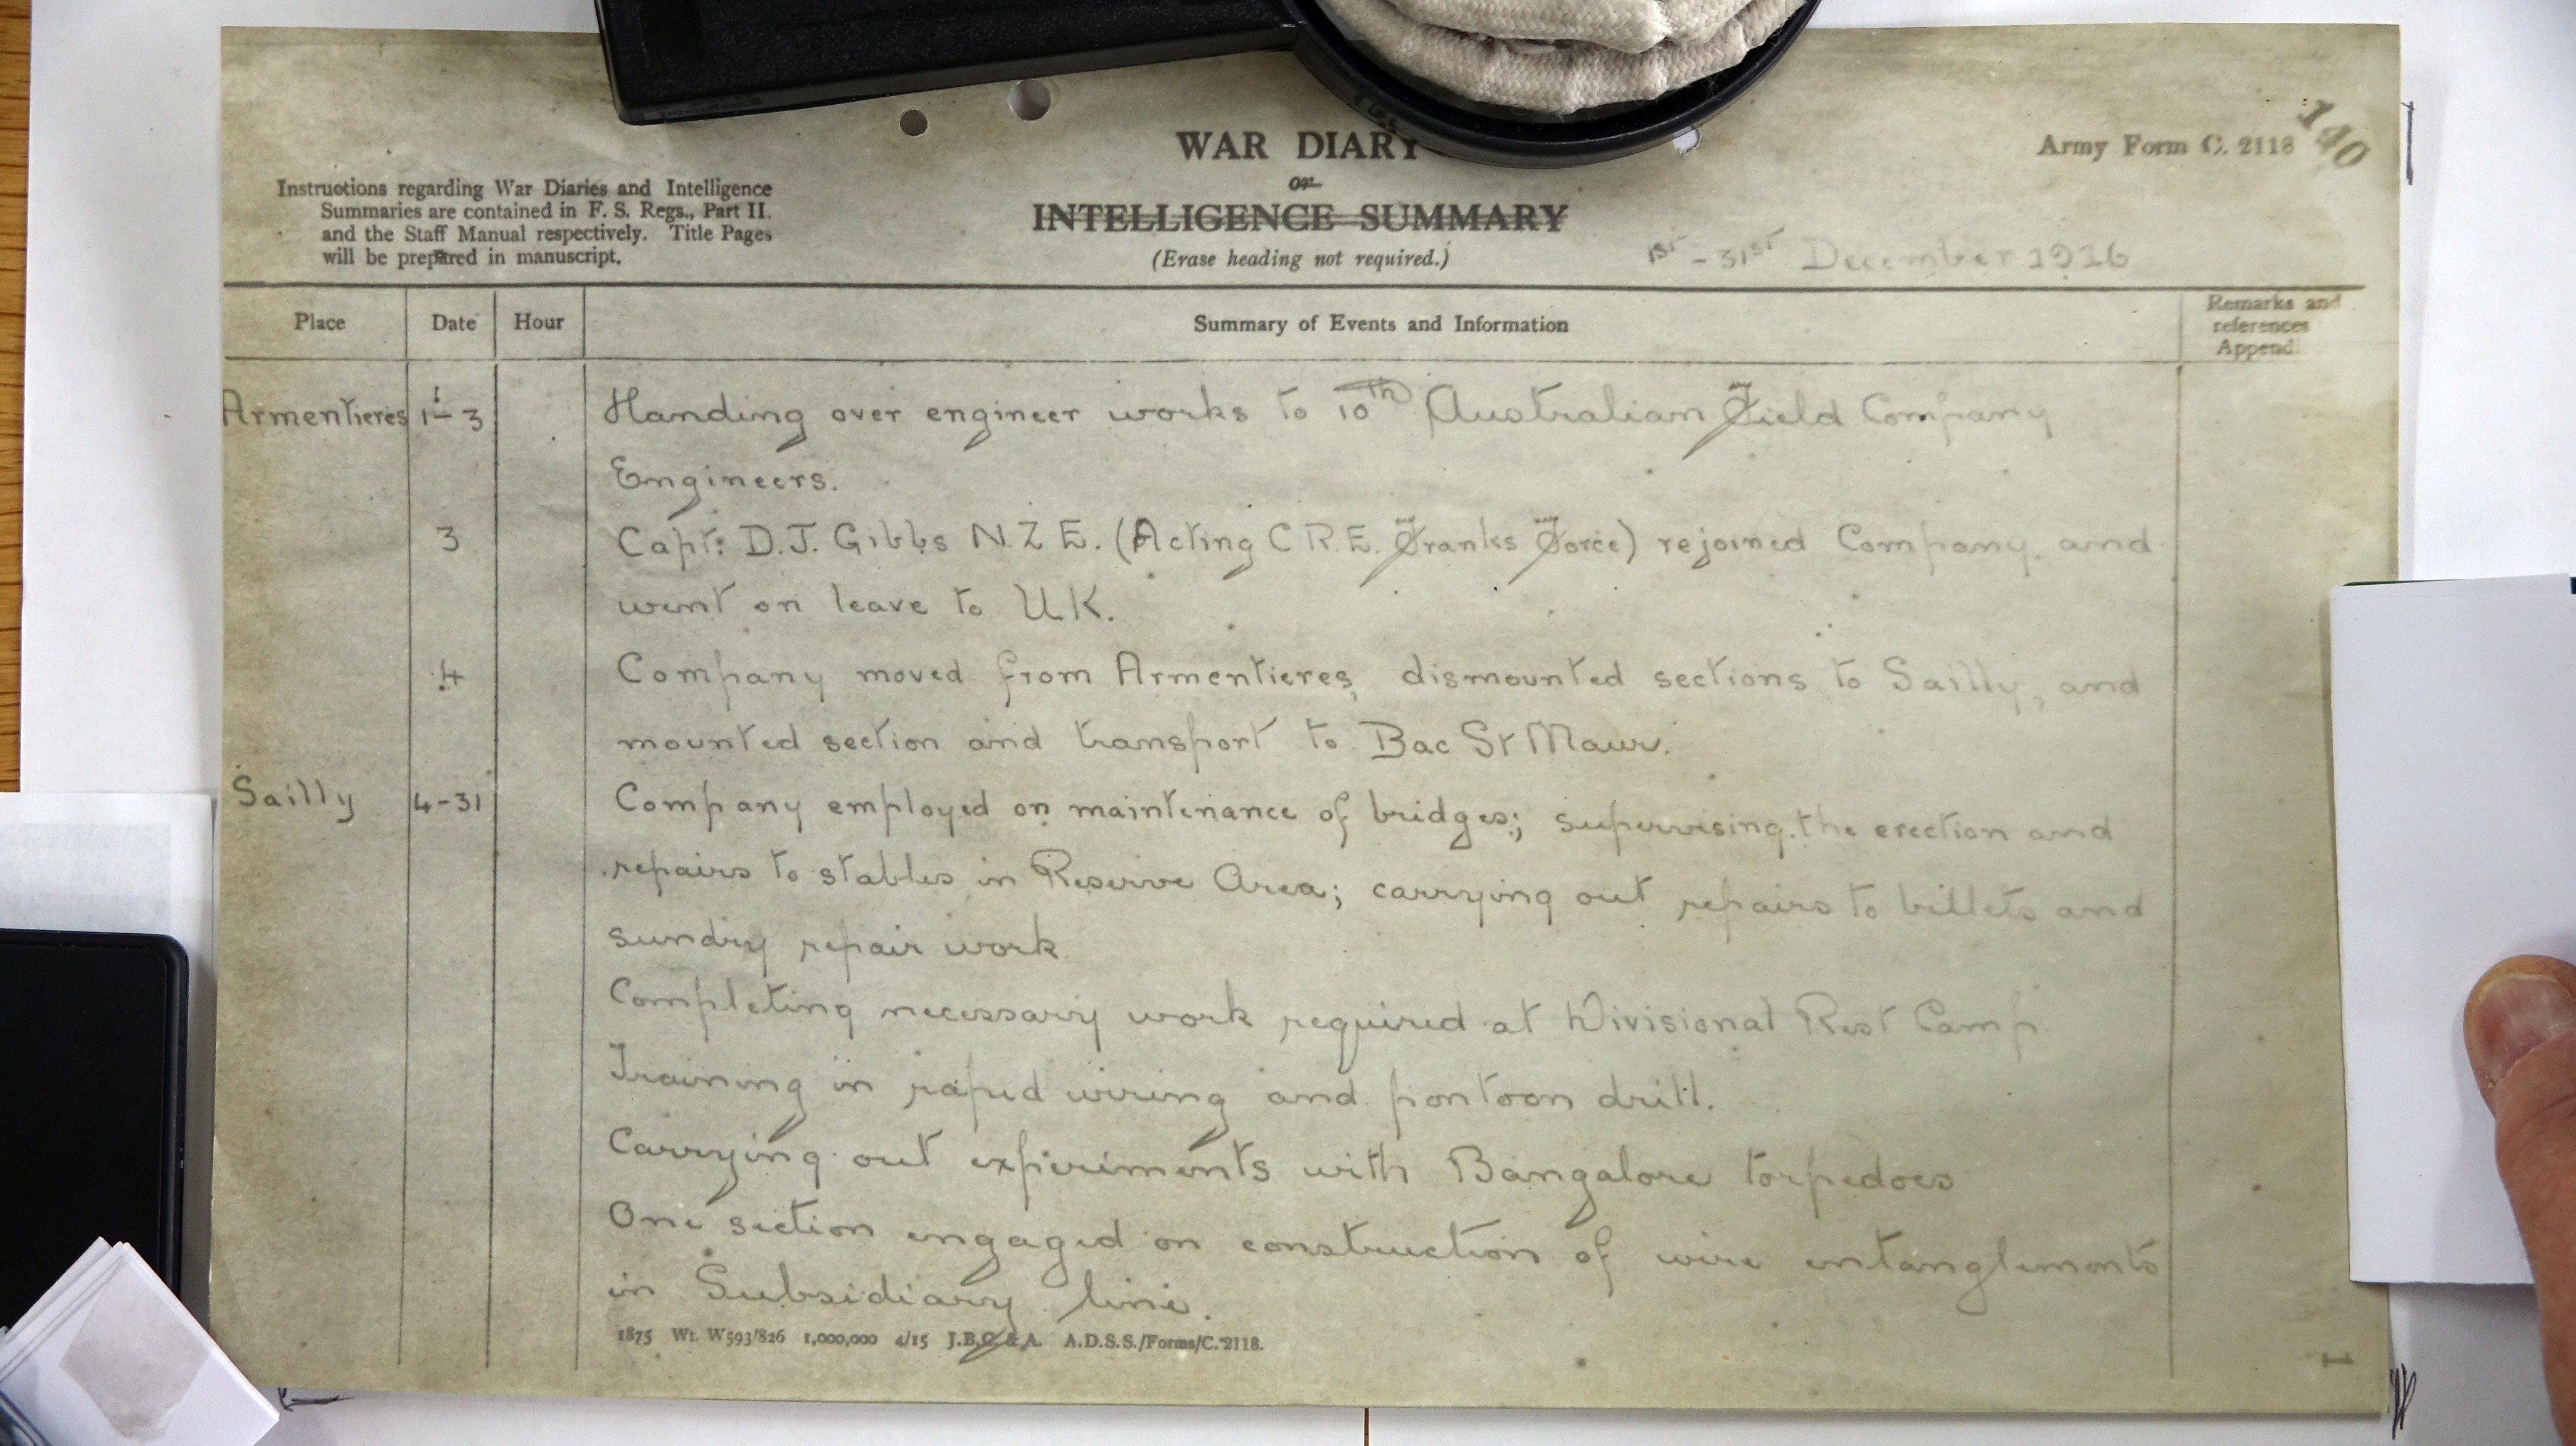 WAR DIARY
or
INTELLIGENCE SUMMARY
(Erase heading not required.)
Army Form C. 2118
140
Instructions regarding War Diaries and Intelligence
Summaries are contained in F. S. Regs., Part II.
and the Staff Manual respectively. Title Pages
will be prepared in manuscript.
1st - 31st December 1916
Place Date Hour Summary of Events and Information Remarks and
references
Append
Armentieres 1-3 Handing over engineer works to 10th Australian Field Company
Engineers.
3 Capt: D.J. Gibbs N.Z.E. (Acting C.R.E. Franks Force) rejoined Company and
went on leave to U.K.
4 Company moved from Armentieres, dismounted sections to Sailly, and
mounted section and transport to Bac St Maur.
Sailly 4-31 Company employed on maintenance of bridges; supervising the erection and
repairs to stables in Reserve Area; carrying out repairs to billets and
sundry repair work
Completing necessary work required at Divisional Rest Camp
Training in rapid wiring and pontoon drill.
Carrying out experiments with Bangalore torpedoes
One section engaged on construction of wire entanglements
in Subsidiary line.
1875 Wt. W593/826 1,000,000 4/15 J.B.C. & A. A.D.S.S./Forms/C. 2118.